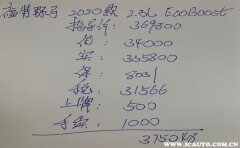 福特锐界 2020款 2.3L EcoBoost
指导价 369800
优 34000
实 335800
保 8031
税 31566
上牌 500
手续 1000
WWW.JCAUTO.COM.CN